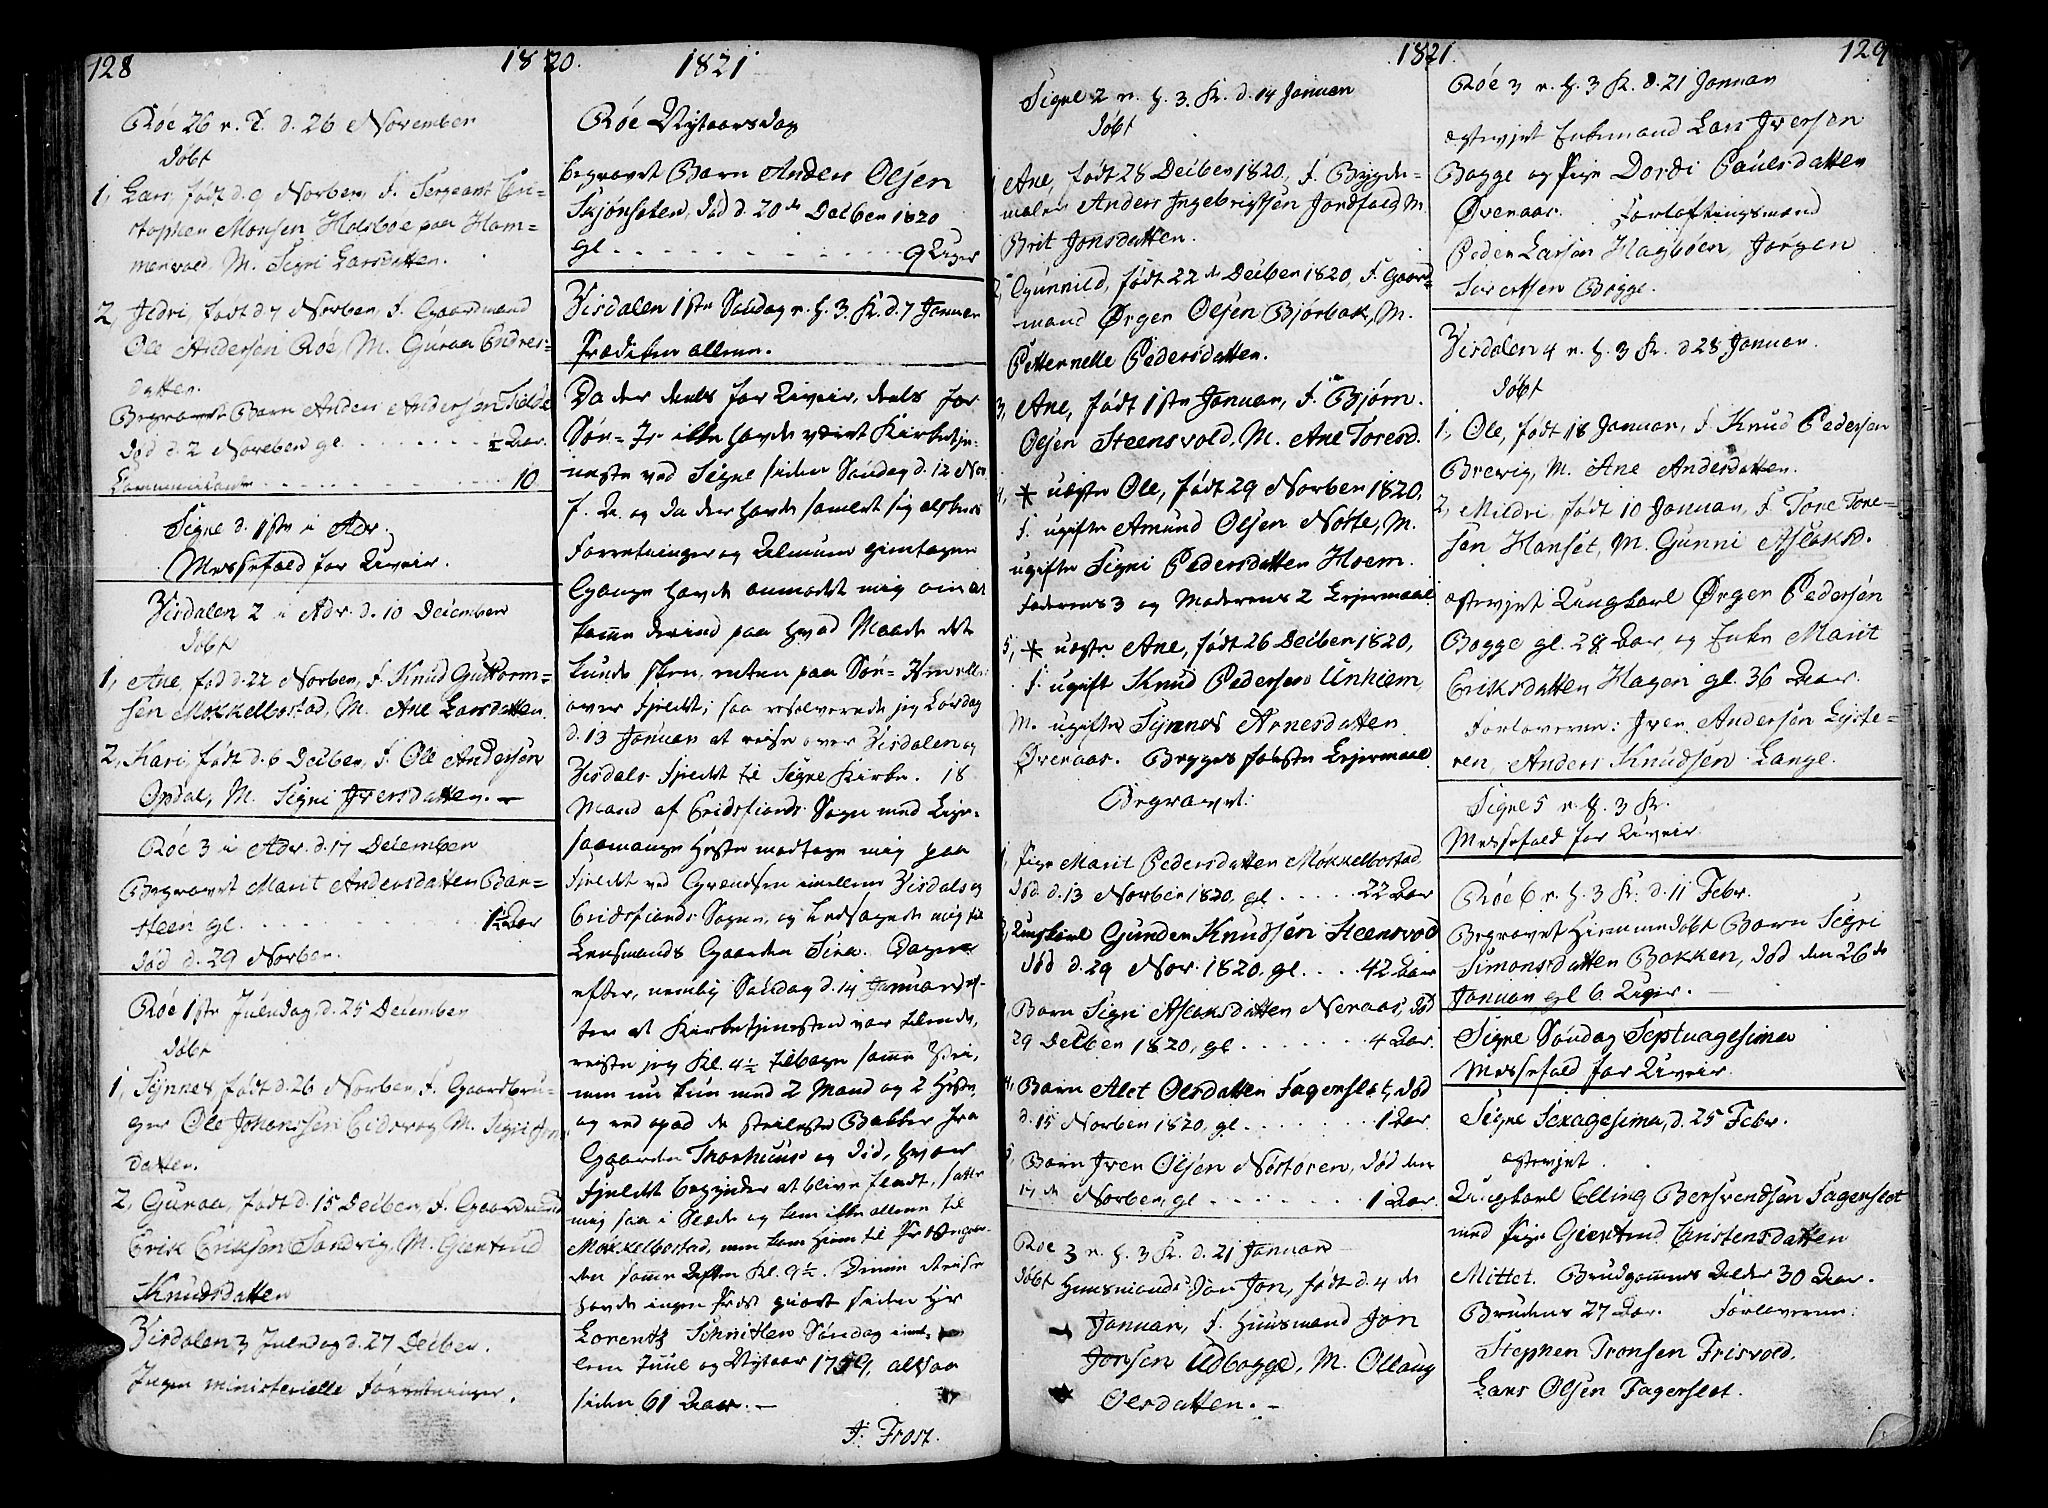 128
1820.
Røe 26 n. T. d. 26 November
døbt
1, Lars, født d. 9 Norben, F. Sergeant Chri-
stopher Monsen Holsboe paa Ham-
mervold, M. Sigri Larsdatter.
2, Jedri, født d. 7 Norben, F. Gaardmand
Ole Andersen Røe, M. Guraa Endres-
datter.
Begravet Barn Anders Andersen Tielde
død d. 2 Norben gl. ½ Aar.
Communicant 10
Signe d. 1ste i Adv.
Messefald for Uveir.
Visdalen 2 i Adv. d. 10 December
døbt
1, Ane, fød d. 22 Norben, F. Knud Guttorm-
sen Mokkelbostad, M. Ane Larsdatter.
2, Kari, født d. 6 Deciben, F. Ole Andersen
Opdal, M. Sigri Iversdatter. –
Røe 3 i Adv. d. 17 December
Begravet Marit Andersdatter Bar-
steen gl. 1½ Aar
død d. 29 Norben.
Røe 1ste Juledag d. 25 December
døbt
1, Synnes, født d. 26 Norben, F. Gaardbru-
ger Ole Johansen Eidsvog, M. Sigri Jens
datter.
2, Guraa, født d. 15 Deciben, F. Gaardmand
Erik Eriksen Sandvig, M. Giertrud
Knudsdatter
Visdalen 3 Juledag d. 27 Deciber.
Ingen ministerielle Forretninger.
1821
Røe Nytaarsdag
begravet Barn Anders Olsen
Skjønseten, død d. 20de Deciben 1820
gl. 9 Uger
Visdalen 1ste Søndag n. H. 3 K. d. 7 Januar
Prædiken allene.
Da der deels for Uveir, deels for
Søe-Is ikke havde været Kirketje-
neste ved Signe siden Søndag d. 12 Nov
f. A. og da der havde samlet sig alskens
Forretninger og Almuen gientagne
Gange havde anmodet mig om at
komme derind paa hvad Maade det
kunde skee, enten paa Søe-Isen eller
over Fjeldet; saa resolverede jeg Lørdag
d. 13 Januar at reise over Visdalen og
Visdals Fjeldet til Signe Kirke. 18
Mand af Eridsfiords Sogn med Lige-
saamange Heste modtoge mig paa
Fjeldet ved Grændsen imellem Visdals og
Eridsfiords Sogn, og ledsagede mig til
Lensmands Gaarden Sira. Dagen
efter, nemlig Søndag d. 14 Januar ef-
ter at Kirketjenesten var tilende,
reiste jeg Kl. 4½ tilbage samme Vei,
men nu kun med 2 Mand og 2 Heste,
og ved opad de steileste Bakker fra
Gaarden Thorhuus og did, hvor
Fjeldet begynder at blive fladt, satte
mig saa i Slæde og kom ikke allene til
Mokkelbostad, men kom hiem til Præstegaar-
den samme Aften Kl. 9½. Denne Reise
havde ingen Præst giort siden Hr
Lorentz Schnitler Søndag imel-
lem Juul og Nytaar 1759, altsaa
siden 61 Aar. –
J. Frost.
1821.
129
Signe 2 n. H. 3. K. d. 14 Januar
døbt
1, Ane, født 28 Deciben 1820, F. Bygde-
maler Anders Ingebrigtsen Jordfald, M.
Brit Jonsdatter.
2, Gunnild, født 22de Deciben 1820, F. Gaard-
mand Ørgen Olsen Bjørbak, M.
Petternelle Pedersdatter.
3, Ane, født 1ste Januar, F. Bjørn
Olsen Steensvold, M. Ane Toresd.
4, * uægte Ole, født 29 Norben 1820,
F. ugifte Amund Olsen Nøste, M.
ugifte Sigri Pedersdatter Hoem.
Faderens 3 og Moderens 2 Lejermaal
5, * uægte Ane, født 26 Deciben 1820,
F. ugift Knud Pedersen Unhiem,
M. ugifte Synnes Arnesdatter
Øvenaas. Begges første Lejermaal.
Begravet:
1, Pige Marit Pedersdatter Mokkelbostad
død d. 13 Norben 1820, gl. 22 Aar
2, Ungkarl Gunder Knudsen Steensvod
død d. 29 Nov. 1820, gl. 42 Aar
3, Barn Sigri Aslaksdatter Neraas, død
29 Deciben 1820, gl. 4 Aar.
4, Barn Alet Olsdatter Fagerslet, død
d. 15 Norben 1820, gl. 1 Aar.
5, Barn Iver Olsen Nørstøren, død den
17de Norben, gl. 1 Aar.
Røe 3 n. H. 3 K. d. 21 Januar
døbt Huusmands Søn Jon, født d. 4 de
Januar, F. Huusmand Jon
Jonsen Udbogge, M. Ollaug
Olsdatter. –
Røe 3 n. H. 3 K. d. 21 Januar
ægteviet Enkemand Lars Iversen
Bogge og Pige Dordi Paulsdatter
Øvenaas. Forlovtingsmænd
Peder Larsen Hagbøen, Jørgen
Sivertsen Bogge.
Visdalen 4 n. H. 3 K. d. 28 Januar.
døbt
1, Ole, født 18 Januar, F. Knud Pedersen
Brewig, M. Ane Andersdatter.
2, Mildri, født 10 Januar, F. Tore Tore-
sen Hanset, M. Gunni Aslaksd.
ægteviet Ungkarl Ørgen Pedersen
Bogge gl. 28 Aar og Enke Marit
Eriksdatter Hagen gl. 36 Aar.
Forlovere: Iver Andersen Lyste-
ren, Anders Knudsen Lange.
Signe 5 n. H. 3 K.
Messefald for Uveir.
Røe 6 n. H. 3 K. d. 11 Febr.
Begravet hjemmedøbt Barn Sigri
Simonsdatter Bakken, død den 26de
Januar gl. 6 Uger. –
Signe Søndag Septuagesima
Messefald for Uveir.
Signe Sexagesima, d. 25 Febr.
ægteviet.
Ungkarl Elling Bersvendsen Fagerslet
med Pige Giertrud Christensdatter
Mittet. Brudgommens Alder 30 Aar.
Brudens 27 Aar. Forlovere:
Stephen Tronsen Frisvold.
Lars Olsen Fagerslet.